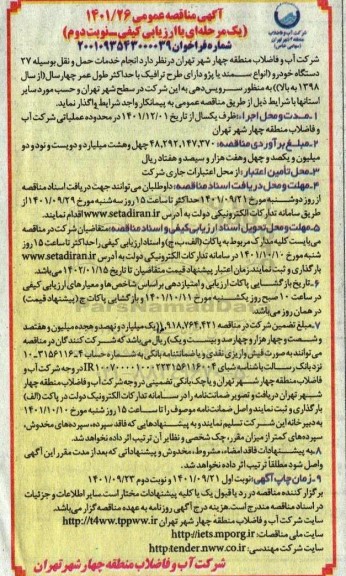 آگهی مناقصه عمومی ۱۴۰۱/۲۶
(یک مرحله‌ای با ارزیابی کیفی-نوبت دوم)
شماره فراخوان ۲۰۰۱۰۹۳۵۴۳۰۰۰۰۳۹
شرکت آب و فاضلاب
منطقه ۴ شهر تهران
(سهامی خاص)
شرکت آب و فاضلاب منطقه چهار شهر تهران در نظر دارد انجام خدمات حمل و نقل بوسیله ۲۷
دستگاه خودرو (انواع سمند یا پژو دارای طرح ترافیک با حداکثر طول عمر چهار سال (از سال
۱۳۹۸ به بالا)) به منظور سرویس‌دهی به این شرکت در سطح شهر تهران و حسب مورد سایر
استانها با شرایط ذیل از طریق مناقصه عمومی به پیمانکار واجد شرایط واگذار نماید.
۱- مدت و محل اجرا: ظرف یکسال از تاریخ ۱۴۰۱/۱۲/۰۱ در محدوده عملیاتی شرکت آب
و فاضلاب منطقه چهار شهر تهران
۲- مبلغ برآوردی مناقصه: ۴۸,۲۹۲,۱۴۷,۳۷۰ چهل و هشت میلیارد و دویست و نود و دو
میلیون و یکصد و چهل و هفت هزار و سیصد و هفتاد ریال
۳- محل تأمین اعتبار: از محل اعتبارات جاری شرکت
۴- مهلت و محل دریافت اسناد مناقصه: داوطلبان می‌توانند جهت دریافت اسناد مناقصه
از روز دوشنبه مورخ ۱۴۰۱/۰۹/۲۱ حداکثر تا ساعت ۱۵ روز سه شنبه مورخ ۱۴۰۱/۰۹/۲۹ از
طریق سامانه تدارکات الکترونیکی دولت به آدرس www.setadiran.ir اقدام نمایند.
۵- مهلت و محل تحویل اسناد ارزیابی کیفی و اسناد مناقصه: متقاضیان شرکت در مناقصه
می‌بایست کلیه مدارک مربوط به پاکات (الف، ب، ج) و اسناد ارزیابی کیفی را حداکثر تا ساعت ۱۵ روز
شنبه مورخ ۱۴۰۱/۱۰/۱۰ در سامانه تدارکات الکترونیکی دولت به آدرس www.setadiran.ir
بارگذاری و ثبت نمایند زمان اعتبار پیشنهاد قیمت متقاضیان تا تاریخ ۱۴۰۲/۰۱/۱۵ می‌باشد.
۶- تاریخ بازگشایی پاکات ارزیابی و امتیازدهی بر اساس شاخص‌ها و معیارهای ارزیابی کیفی
در ساعت ۱۰ صبح روز یکشنبه مورخ ۱۴۰۱/۱۰/۱۱ و بازگشایی پاکات ج (پیشنهاد قیمت)
در همان روز می‌باشد.
۷- مبلغ تضمین شرکت در مناقصه ۱,۹۱۸,۷۶۴,۴۲۱ (یک میلیارد و نهصد و هجده میلیون و هفتصد
و شصت و چهار هزار و چهارصد و بیست و یک) ریال می‌باشد که شرکت کنندگان در مناقصه
می‌توانند به صورت فیش واریزی نقدی و یا ضمانتنامه بانکی به شماره حساب
نزد بانک رسالت با شناسه شبای
در وجه شرکت آب و
فاضلاب منطقه چهار شهر تهران و یا چک بانکی تضمینی در وجه شرکت آب و فاضلاب منطقه چهار
شهر تهران دریافت و تصویر ضمانت‌نامه را در سامانه تدارکات الکترونیک دولت در پاکت (الف)
بارگذاری و ثبت نمایند و اصل ضمانت‌نامه موصوف را تا ساعت ۱۵ روز شنبه مورخ ۱۴۰۱/۱۰/۱۰
به دبیرخانه این شرکت تسلیم نمایند و به پیشنهادهایی که فاقد سپرده، سپرده‌های مخدوش،
سپرده‌های کمتر از میزان مقرر، چک شخصی و نظایر آن ترتیب اثر داده نخواهد شد.
۸- به پیشنهادات فاقد امضاء، مشروط، مخدوش و پیشنهاداتی که بعد از مدت مقرر این آگهی
واصل شود مطلقاً ترتیب اثر داده نخواهد شد.
۹- زمان چاپ آگهی: نوبت اول ۱۴۰۱/۰۹/۲۱ و نوبت دوم ۱۴۰۱/۰۹/۲۳
برگزار کننده مناقصه در رد یا قبول یک یا کلیه پیشنهادات مختار است سایر اطلاعات و جزئیات
در اسناد مناقصه مندرج است. هزینه درج آگهی روزنامه به عهده مناقصه گزار می‌باشد.
سایت شرکت آب و فاضلاب منطقه چهار شهر تهران: http://t4ww.tppww.ir
سایت ملی مناقصات: http://iets.mporg.ir
سایت شرکت مهندسی: http:tender.nww.co.ir
شرکت آب و فاضلاب منطقه چهار شهر تهران